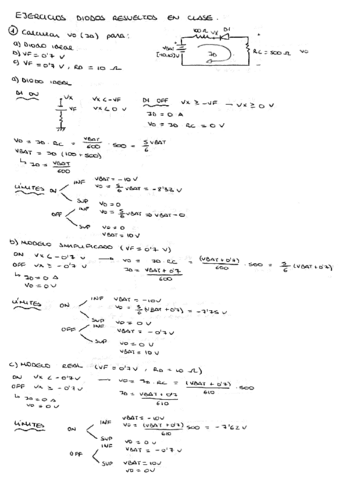 EJERCICIOS DIODOS RESUELTOS EN CLASE.
① CALCULAR VO (ID) PARA:
a) DIODO IDEAL
b) VF = 0'7 V
c) VF = 0'7 V, RD = 10 Ω
100Ω VX D1
VBAT
(-10,10)V
ID
RC = 500 Ω VO
a) DIODO IDEAL
D1 ON
VX
VF
VX < -VF
VX < 0 V
D1 OFF VX ≥ -VF → VX ≥ 0 V
ID = 0 A
VO = ID · RC = 0 V
VO = ID · RC = VBAT/600 · 500 = 5/6 VBAT
VBAT = ID (100 + 500)
↳ ID = VBAT/600
LÍMITES
ON
INF VBAT = -10 V
VO = 5/6 VBAT = -8'33 V
SUP VO = 0
VO = 5/6 VBAT ⇒ VBAT = 0
OFF
INF
SUP VO = 0
VBAT = 10 V
b) MODELO SIMPLIFICADO (VF = 0'7 V)
ON VX < -0'7 V → VO = ID · RC = (VBAT + 0'7)/600 · 500 = 5/6 (VBAT + 0'7)
OFF VX ≥ -0'7 V ID = VBAT + 0'7/600
↳ ID = 0 A
VO = 0 V
LÍMITES
ON
INF VBAT = -10 V
VO = 5/6 (VBAT + 0'7) = -7'75 V
SUP VO = 0 V
OFF
INF VBAT = -0'7 V
SUP VO = 0 V
VBAT = 10 V
c) MODELO REAL (VF = 0'7 V, RD = 10 Ω)
ON VX < -0'7 V → VO = ID · RC = (VBAT + 0'7)/610 · 500
OFF VX ≥ -0'7 V ID = VBAT + 0'7/610
↳ ID = 0 A
VO = 0 V
LÍMITES
ON
INF VBAT = -10 V
VO = (VBAT + 0'7)/610 500 = -7'62 V
SUP VO = 0 V
OFF
INF VBAT = -0'7 V
SUP VBAT = 10 V
VO = 0 V